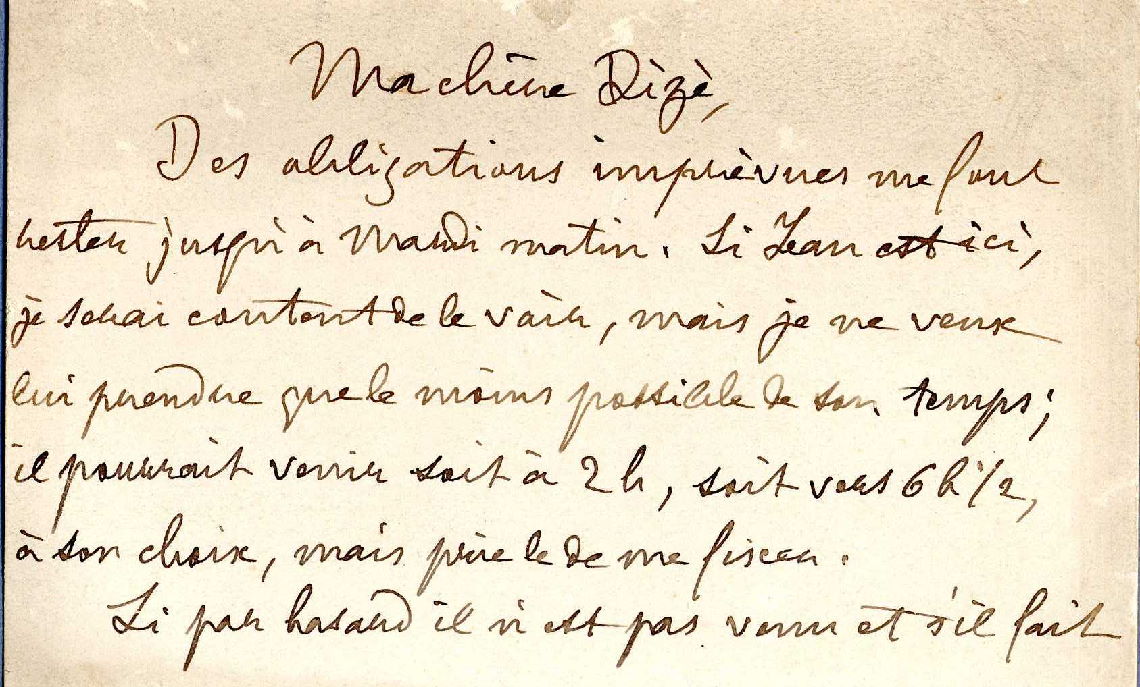 Ma chère Zizi,
Des obligations imprévues me font
rester jusqu'à Mardi matin. Si Jean est ici,
je serai content de le voir, mais je ne veux
lui prendre que le moins possible de son temps;
il pourrait venir soit à 2 h, soit vers 6 h 1/2,
à son choix, mais prie le de me fixer.
Si par hasard il n'est pas venu et s'il fait